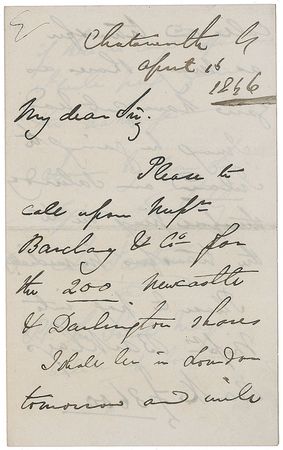 Chatsworth
April 16
1866
My dear Sir,
Please to
call upon Messrs
Barclay & Co for
the 200 Newcastle
& Darlington shares
I shall be in London
tomorrow and will